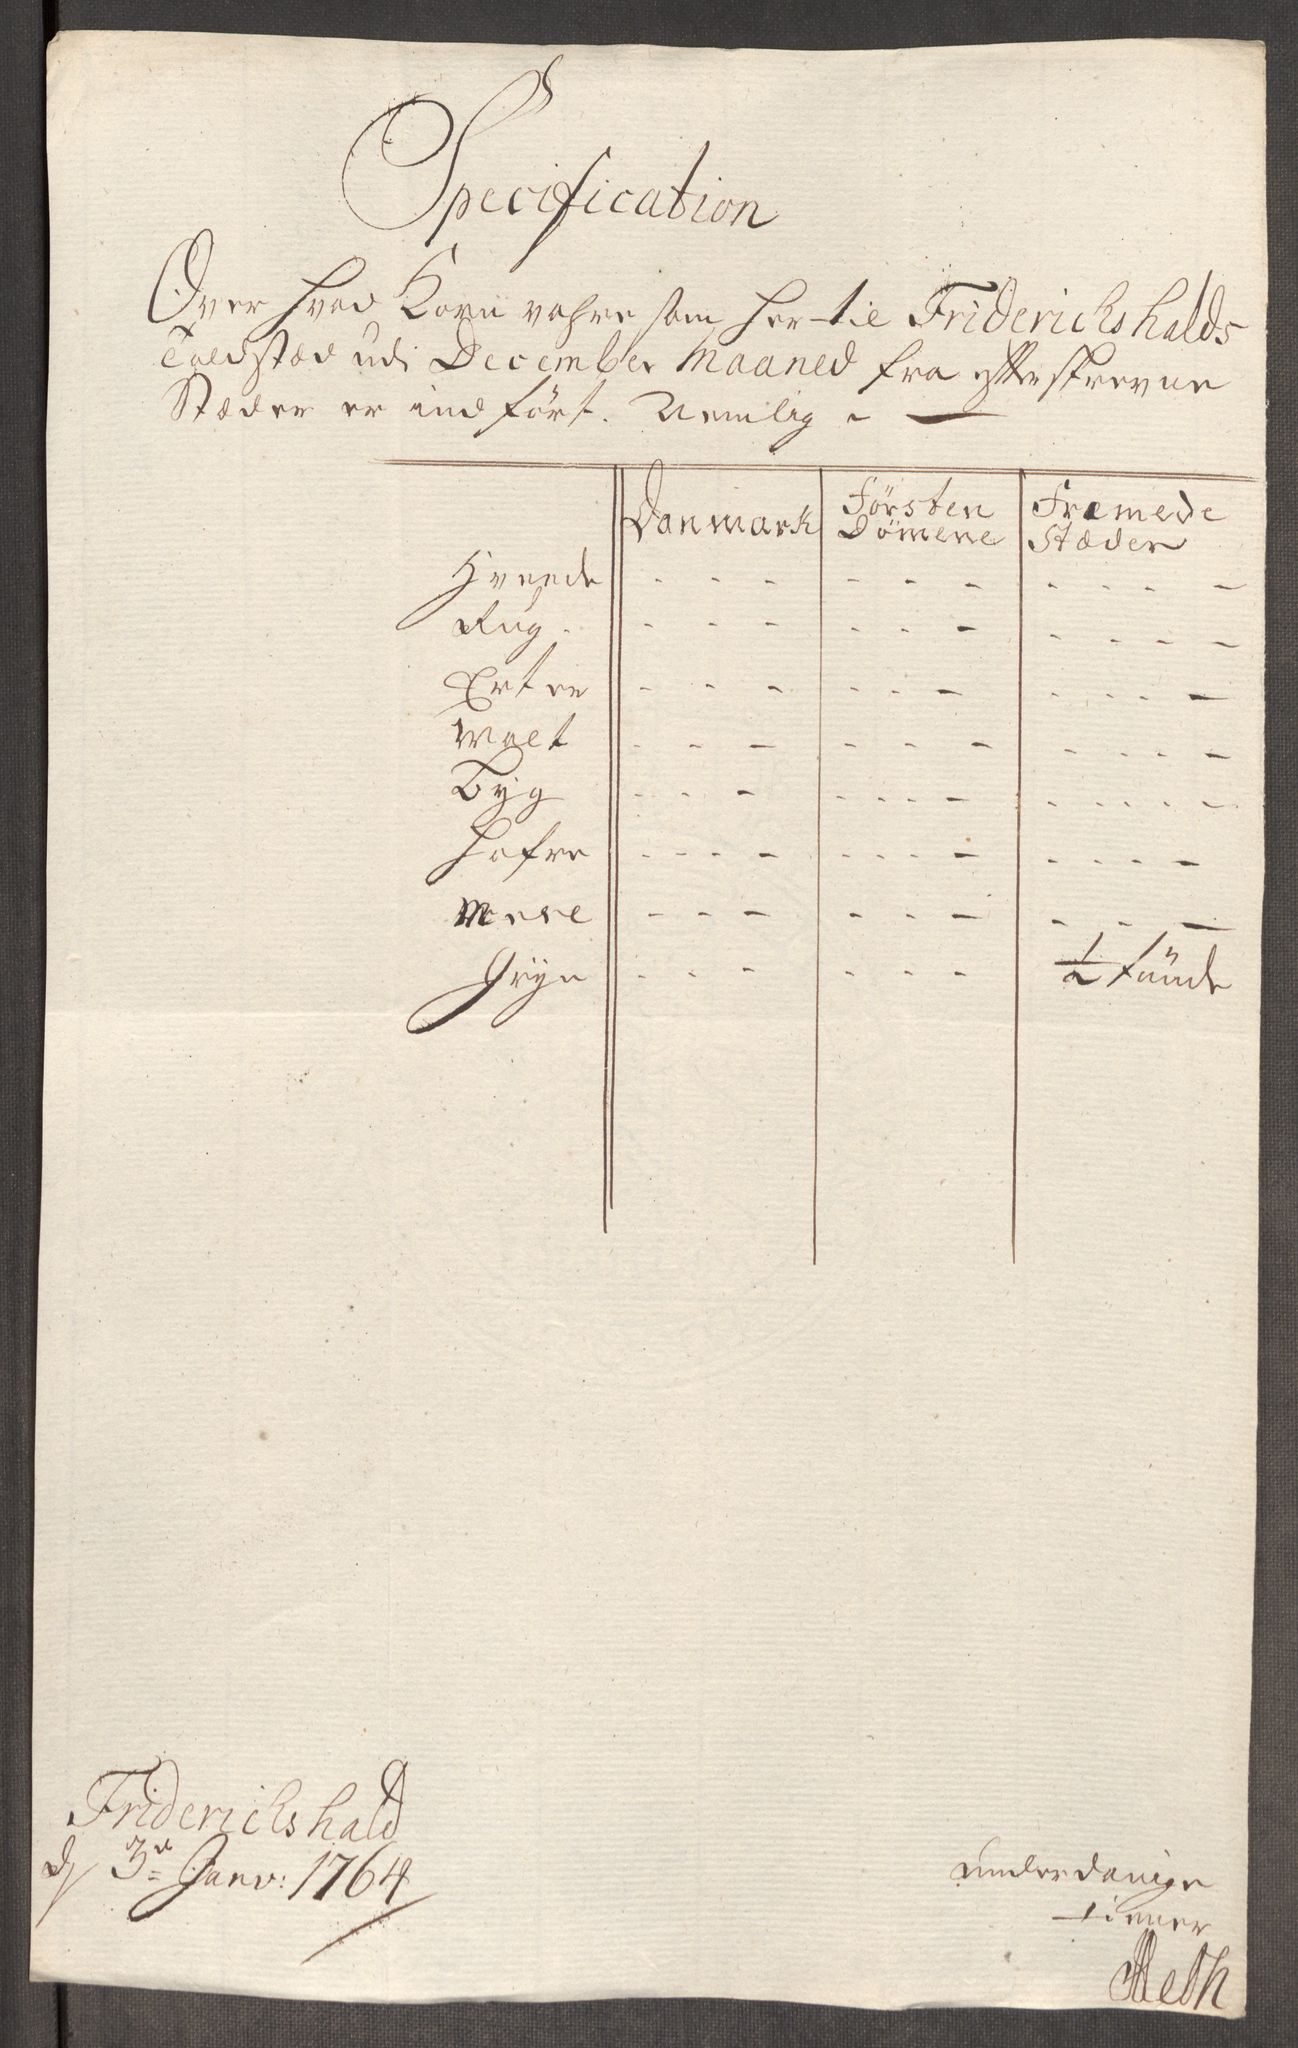 Specification
Over hvad Korn vahre som her til Friderichshalds
Toldstæd udi December Maaned fra efterskrevne
Stæder er indført. Nemlig
Danmark | Førsten Dömene | Fremede Stæder
Hvede - - - | - - - | - - - -
Rug - - - | - - - | - - - -
Erter - - - | - - - | - - - -
Malt - - - | - - - | - - - -
Byg - - - | - - - - | - - - - -
Hafre - - - - | - - - - | - - - -
Meel - - - | - - - | - - -
Gryn - - - | - - - - | 1/2 tünde
Friderichshald
d 3e Janv: 1764
underdanige
tiener